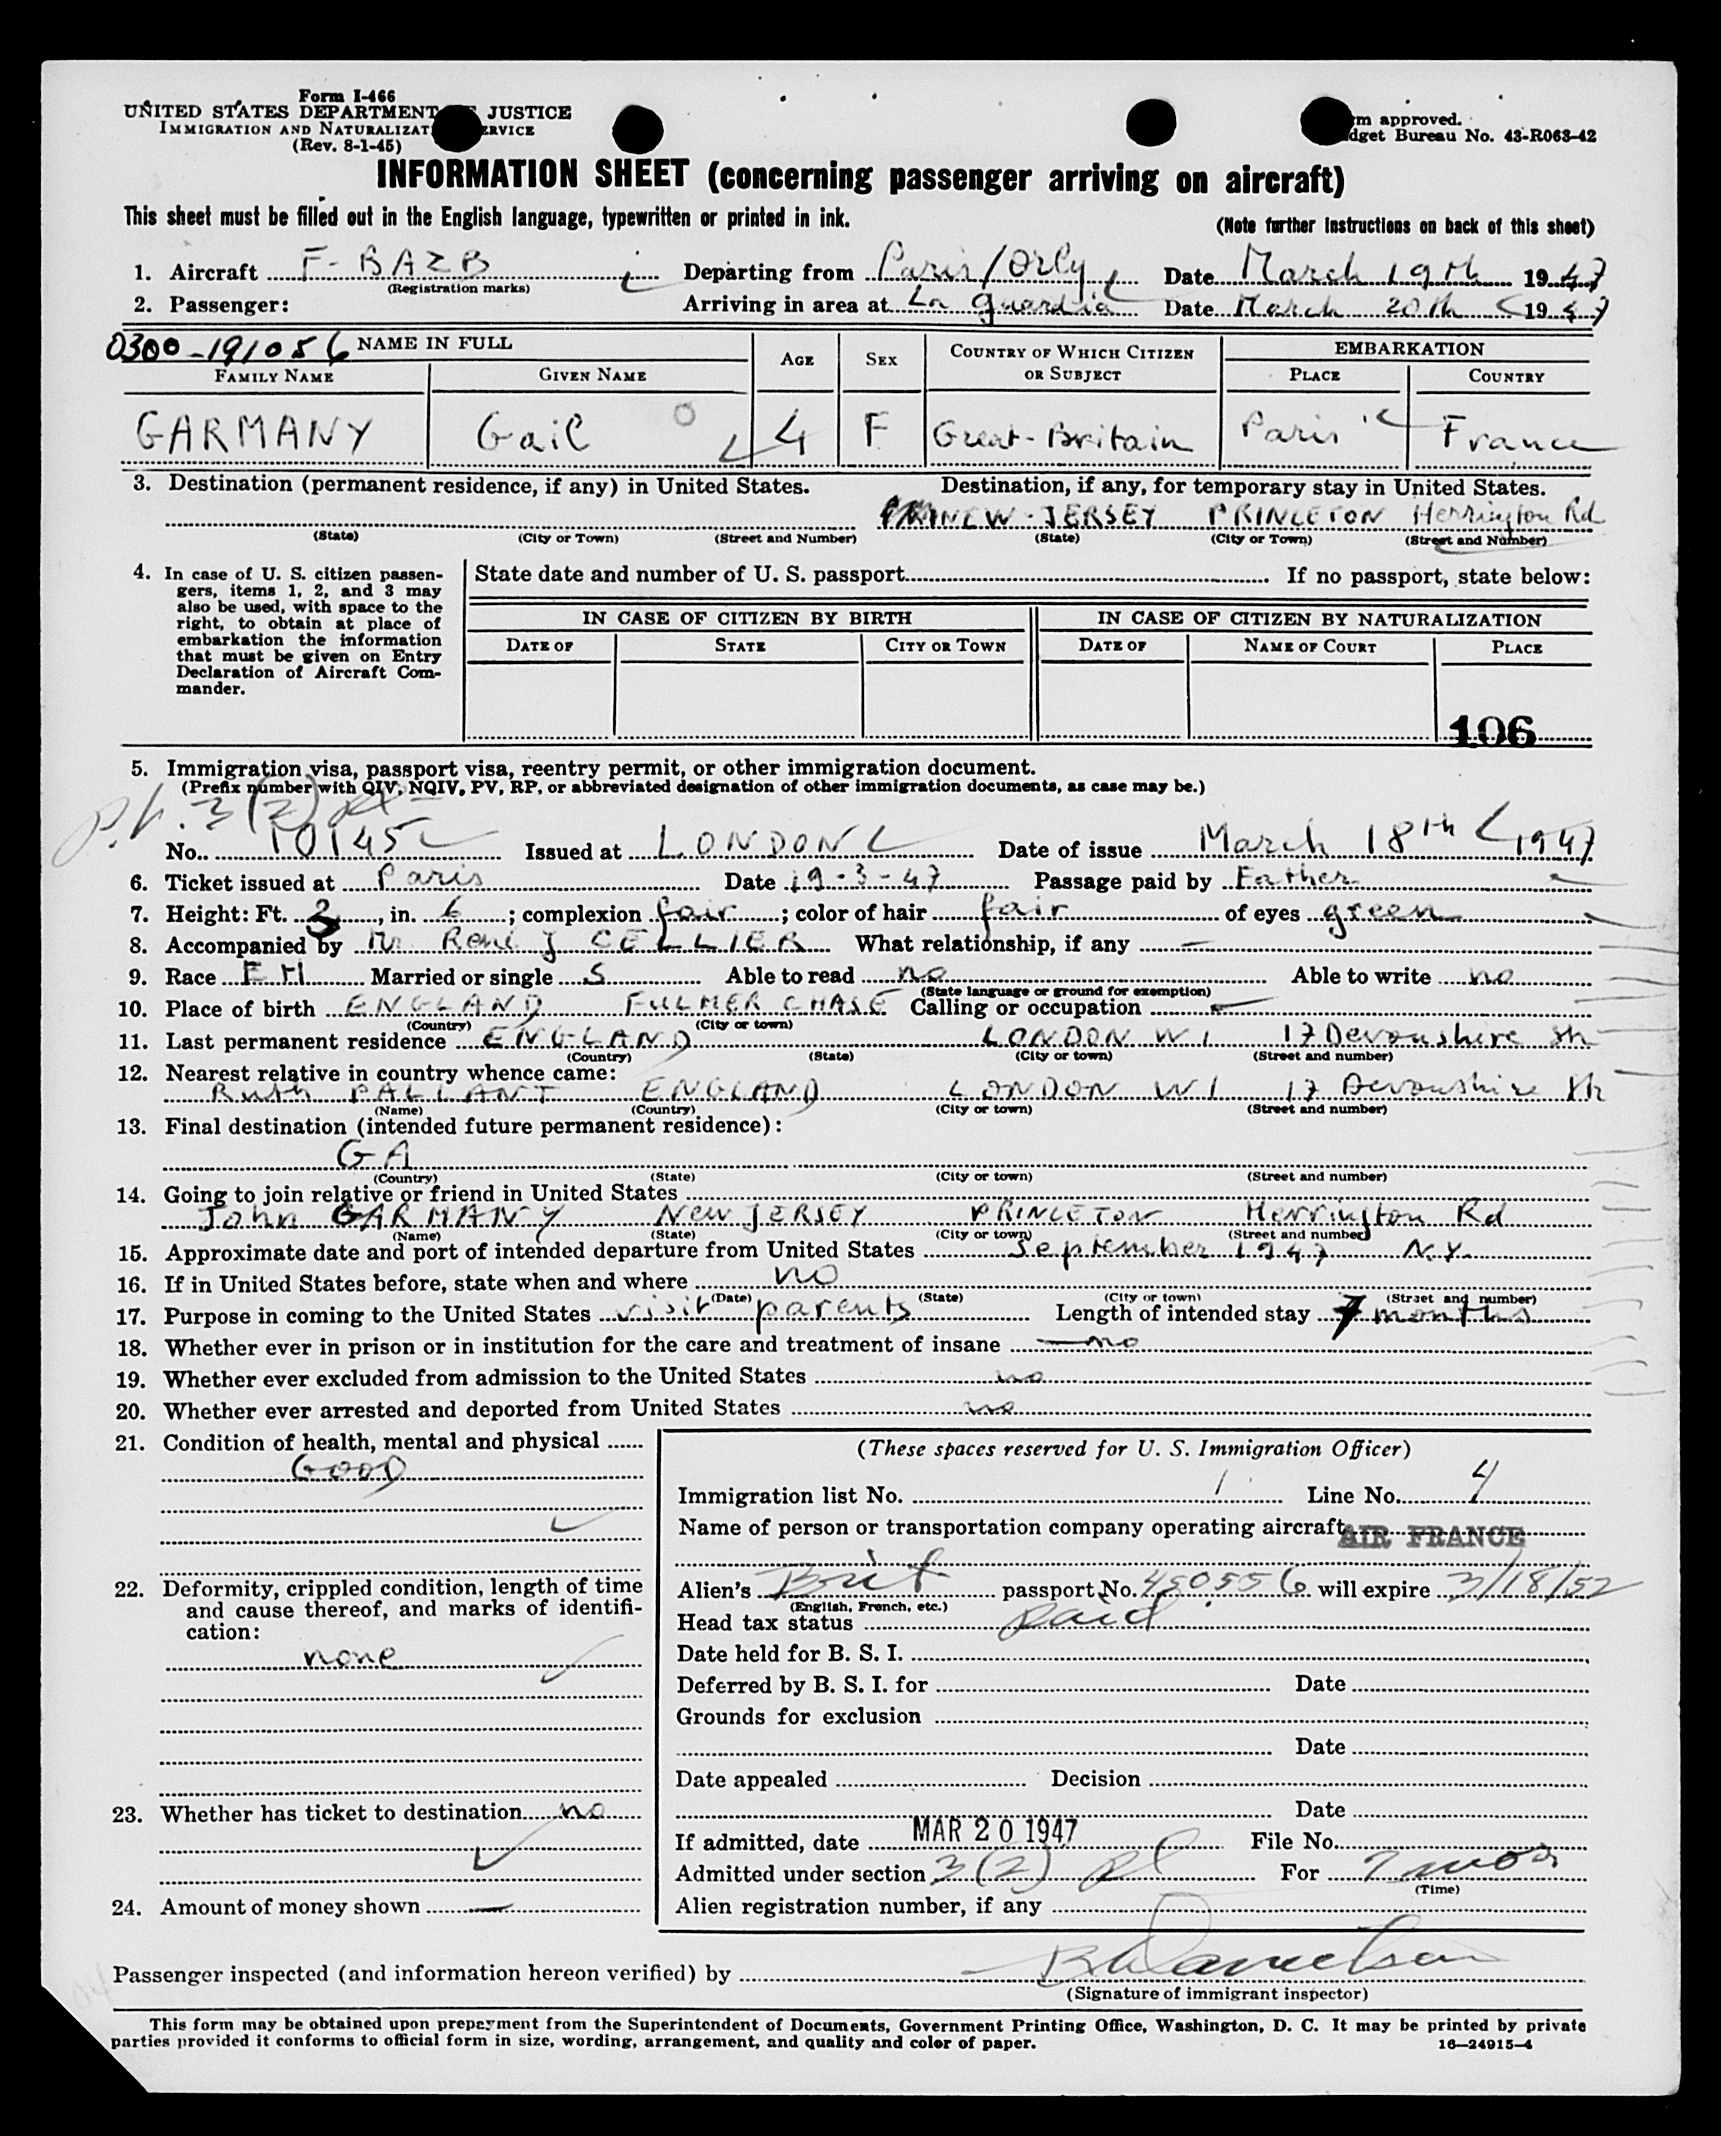 Form I-466
UNITED STATES DEPARTMENT JUSTICE
IMMIGRATION AND NATURALIZAT ERVICE
(Rev. 8-1-45)
m approved.
dget Bureau No. 43-R063-42
INFORMATION SHEET (concerning passenger arriving on aircraft)
This sheet must be filled out in the English language, typewritten or printed in ink.
(Note further instructions on back of this sheet)
1. Aircraft F-BAZB Departing from Paris/Orly Date March 19th 1947
(Registration marks)
2. Passenger: Arriving in area at La Guardia Date March 20th 1947
0300-191056 NAME IN FULL AGE SEX COUNTRY OF WHICH CITIZEN OR SUBJECT EMBARKATION
FAMILY NAME GIVEN NAME PLACE COUNTRY
GARMANY Gail 4 F Great-Britain Paris France
3. Destination (permanent residence, if any) in United States. Destination, if any, for temporary stay in United States.
NEW-JERSEY PRINCETON Herrington Rd
(State) (City or Town) (Street and Number) (State) (City or Town) (Street and Number)
4. In case of U. S. citizen passen-
gers, items 1, 2, and 3 may
also be used, with space to the
right, to obtain at place of
embarkation the information
that must be given on Entry
Declaration of Aircraft Com-
mander.
State date and number of U. S. passport If no passport, state below:
IN CASE OF CITIZEN BY BIRTH IN CASE OF CITIZEN BY NATURALIZATION
DATE OF STATE CITY OR TOWN DATE OF NAME OF COURT PLACE
106
5. Immigration visa, passport visa, reentry permit, or other immigration document.
(Prefix number with QIV, NQIV, PV, RP, or abbreviated designation of other immigration documents, as case may be.)
3(2)
No. 10145 Issued at LONDON Date of issue March 18th 1947
6. Ticket issued at Paris Date 19-3-47 Passage paid by Father
7. Height: Ft. 3, in. 6; complexion fair; color of hair fair of eyes green
8. Accompanied by Mr René J CELLIER What relationship, if any —
9. Race EH Married or single S Able to read no Able to write no
(State language or ground for exemption)
10. Place of birth ENGLAND FULMER CHASE Calling or occupation —
(Country) (City or town)
11. Last permanent residence ENGLAND LONDON W1 17 Devonshire
(Country) (State) (City or town) (Street and number)
12. Nearest relative in country whence came:
Ruth PALLANT ENGLAND LONDON W1 17 Devonshire
(Name) (Country) (City or town) (Street and number)
13. Final destination (intended future permanent residence):
GA
(Country) (State) (City or town) (Street and number)
14. Going to join relative or friend in United States
John GARMANY NEW JERSEY PRINCETON Herrington Rd
(Name) (State) (City or town) (Street and number)
15. Approximate date and port of intended departure from United States September 1947 N.Y.
16. If in United States before, state when and where no
(Date) (State) (City or town) (Street and number)
17. Purpose in coming to the United States visit parents Length of intended stay 7 months
18. Whether ever in prison or in institution for the care and treatment of insane — no
19. Whether ever excluded from admission to the United States no
20. Whether ever arrested and deported from United States no
21. Condition of health, mental and physical
GOOD
22. Deformity, crippled condition, length of time
and cause thereof, and marks of identifi-
cation:
none
23. Whether has ticket to destination no
24. Amount of money shown —
(These spaces reserved for U. S. Immigration Officer)
Immigration list No. 1 Line No. 4
Name of person or transportation company operating aircraft AIR FRANCE
Alien's Brit passport No. 450556 will expire 3/18/52
(English, French, etc.)
Head tax status paid
Date held for B. S. I.
Deferred by B. S. I. for Date
Grounds for exclusion
Date
Date appealed Decision
Date
If admitted, date MAR 20 1947 File No.
Admitted under section 3(2) For 7 mos
(Time)
Alien registration number, if any
Passenger inspected (and information hereon verified) by Danielson
(Signature of immigrant inspector)
This form may be obtained upon prepayment from the Superintendent of Documents, Government Printing Office, Washington, D. C. It may be printed by private
parties provided it conforms to official form in size, wording, arrangement, and quality and color of paper. 16—24915-4